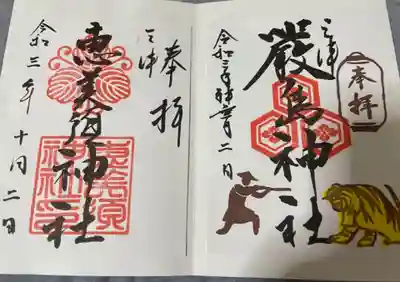 奉拝
三津
嚴島神社
令和三年神無月二日
奉拝
三津
恵美須神社
令和三年十月二日